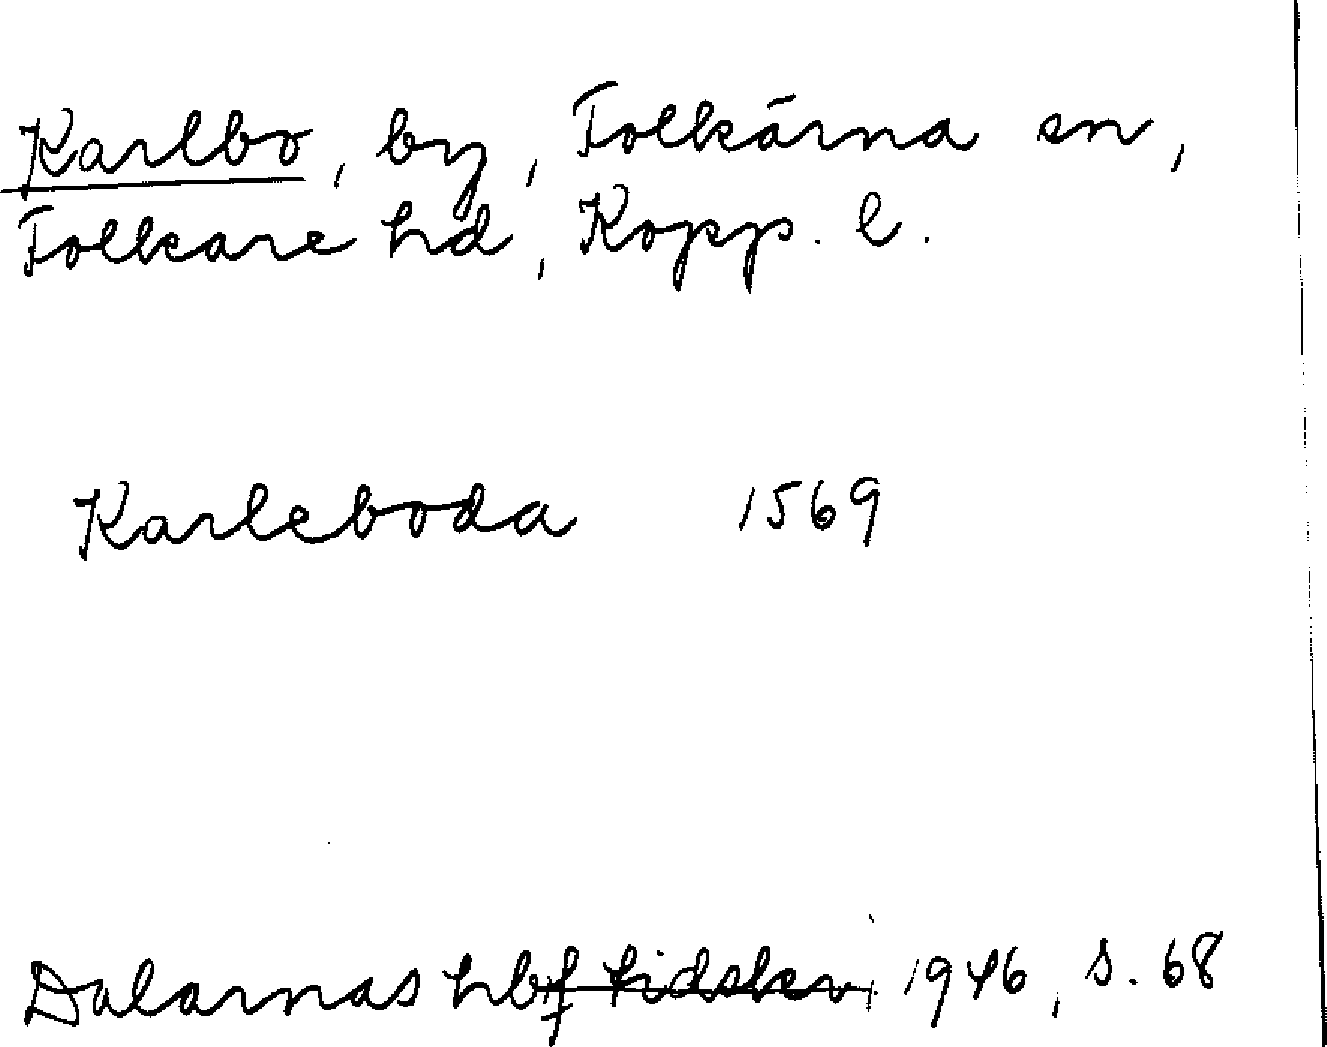 Karlbo, by, Folkärna sn,
Folkare hd, Kopp. l.
Karleboda 1569
Dalarnas hbf tidskr. 1946, s. 68